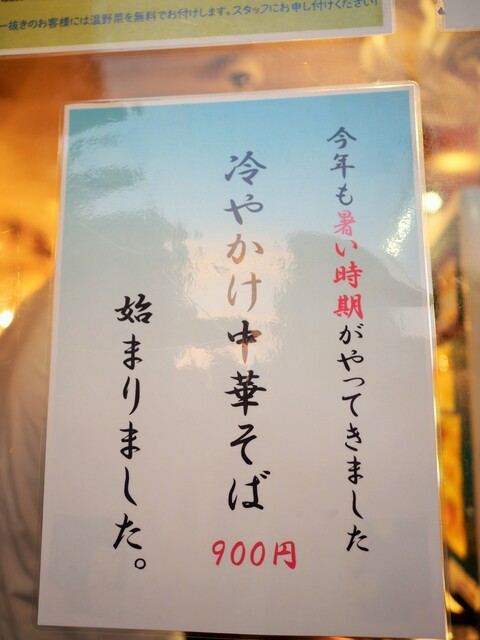 一抜きのお客様には温野菜を無料でお付けします。スタッフにお申し付けください!
今年も暑い時期がやってきました
冷やかけ中華そば
900円
始まりました。